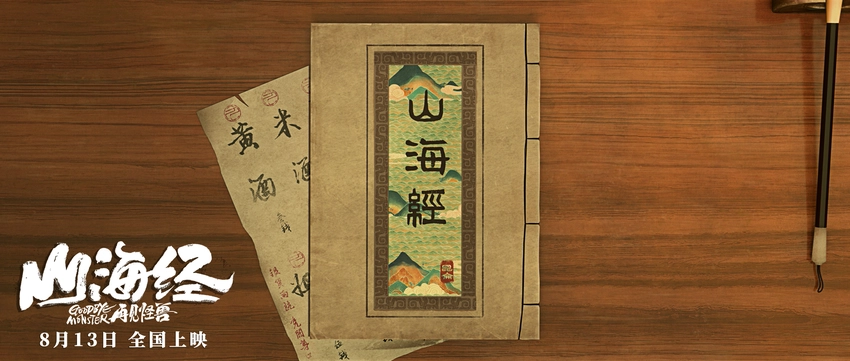 山海經
黄酒
米酒
山海经
GOODBYE
MONSTER
再见怪兽
8月13日 全国上映